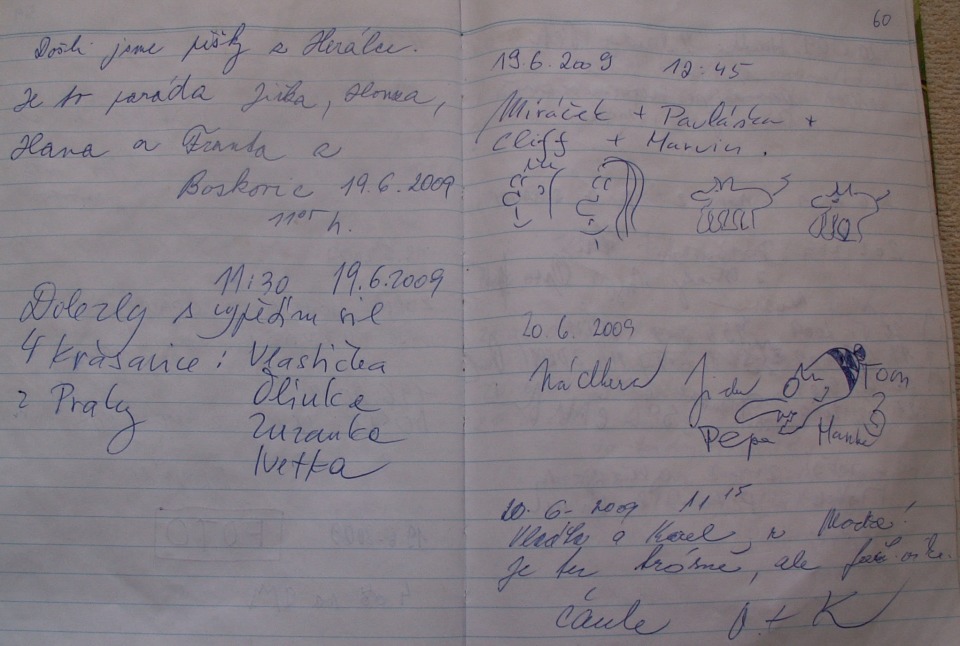 Došli jsme pěšky z Herálce.
Je to paráda Jirka, Honza,
Hana a Franta z
Boskovic 19.6.2009
11⁰⁵ h.
11:30 19.6.2009
Dolezly s vypětím sil
4 krasavice: Vlastička
z Prahy Olinka
Zuzanka
Ivetka
60
19.6.2009 12:45
Miráček + Pavláska +
Cliff + Marvin.
20.6.2009
Nádhera Jida Tom
Pepa Hanka
20.6.2009 11¹⁵
a Karel, z
Je tu krásně, ale fouká.
O + K